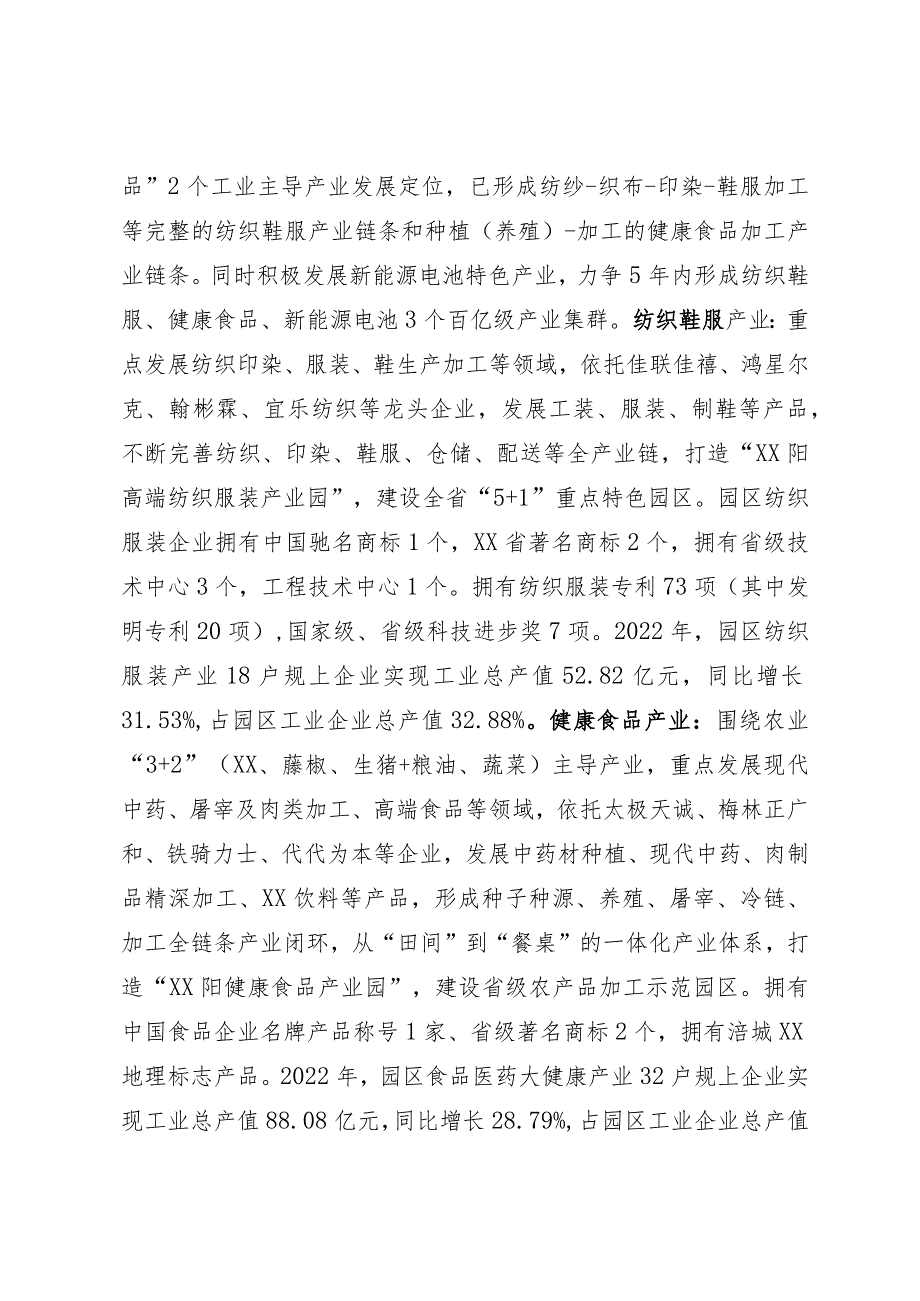 品”2 个工业主导产业发展定位，已形成纺纱-织布-印染-鞋服加工
等完整的纺织鞋服产业链条和种植（养殖）-加工的健康食品加工产
业链条。同时积极发展新能源电池特色产业，力争 5 年内形成纺织鞋
服、健康食品、新能源电池 3 个百亿级产业集群。纺织鞋服产业：重
点发展纺织印染、服装、鞋生产加工等领域，依托佳联佳禧、鸿星尔
克、翰彬霖、宜乐纺织等龙头企业，发展工装、服装、制鞋等产品，
不断完善纺织、印染、鞋服、仓储、配送等全产业链，打造“XX 阳
高端纺织服装产业园”，建设全省“5+1”重点特色园区。园区纺织
服装企业拥有中国驰名商标 1 个，XX 省著名商标 2 个，拥有省级技
术中心 3 个，工程技术中心 1 个。拥有纺织服装专利 73 项（其中发
明专利 20 项）,国家级、省级科技进步奖 7 项。2022 年，园区纺织
服装产业 18 户规上企业实现工业总产值 52.82 亿元，同比增长
31.53%,占园区工业企业总产值 32.88%。健康食品产业：围绕农业
“3+2”（XX、藤椒、生猪+粮油、蔬菜）主导产业，重点发展现代
中药、屠宰及肉类加工、高端食品等领域，依托太极天诚、梅林正广
和、铁骑力士、代代为本等企业，发展中药材种植、现代中药、肉制
品精深加工、XX 饮料等产品，形成种子种源、养殖、屠宰、冷链、
加工全链条产业闭环，从“田间”到“餐桌”的一体化产业体系，打
造“XX 阳健康食品产业园”，建设省级农产品加工示范园区。拥有
中国食品企业名牌产品称号 1 家、省级著名商标 2 个，拥有涪城 XX
地理标志产品。2022 年，园区食品医药大健康产业 32 户规上企业实
现工业总产值 88.08 亿元,同比增长 28.79%,占园区工业企业总产值